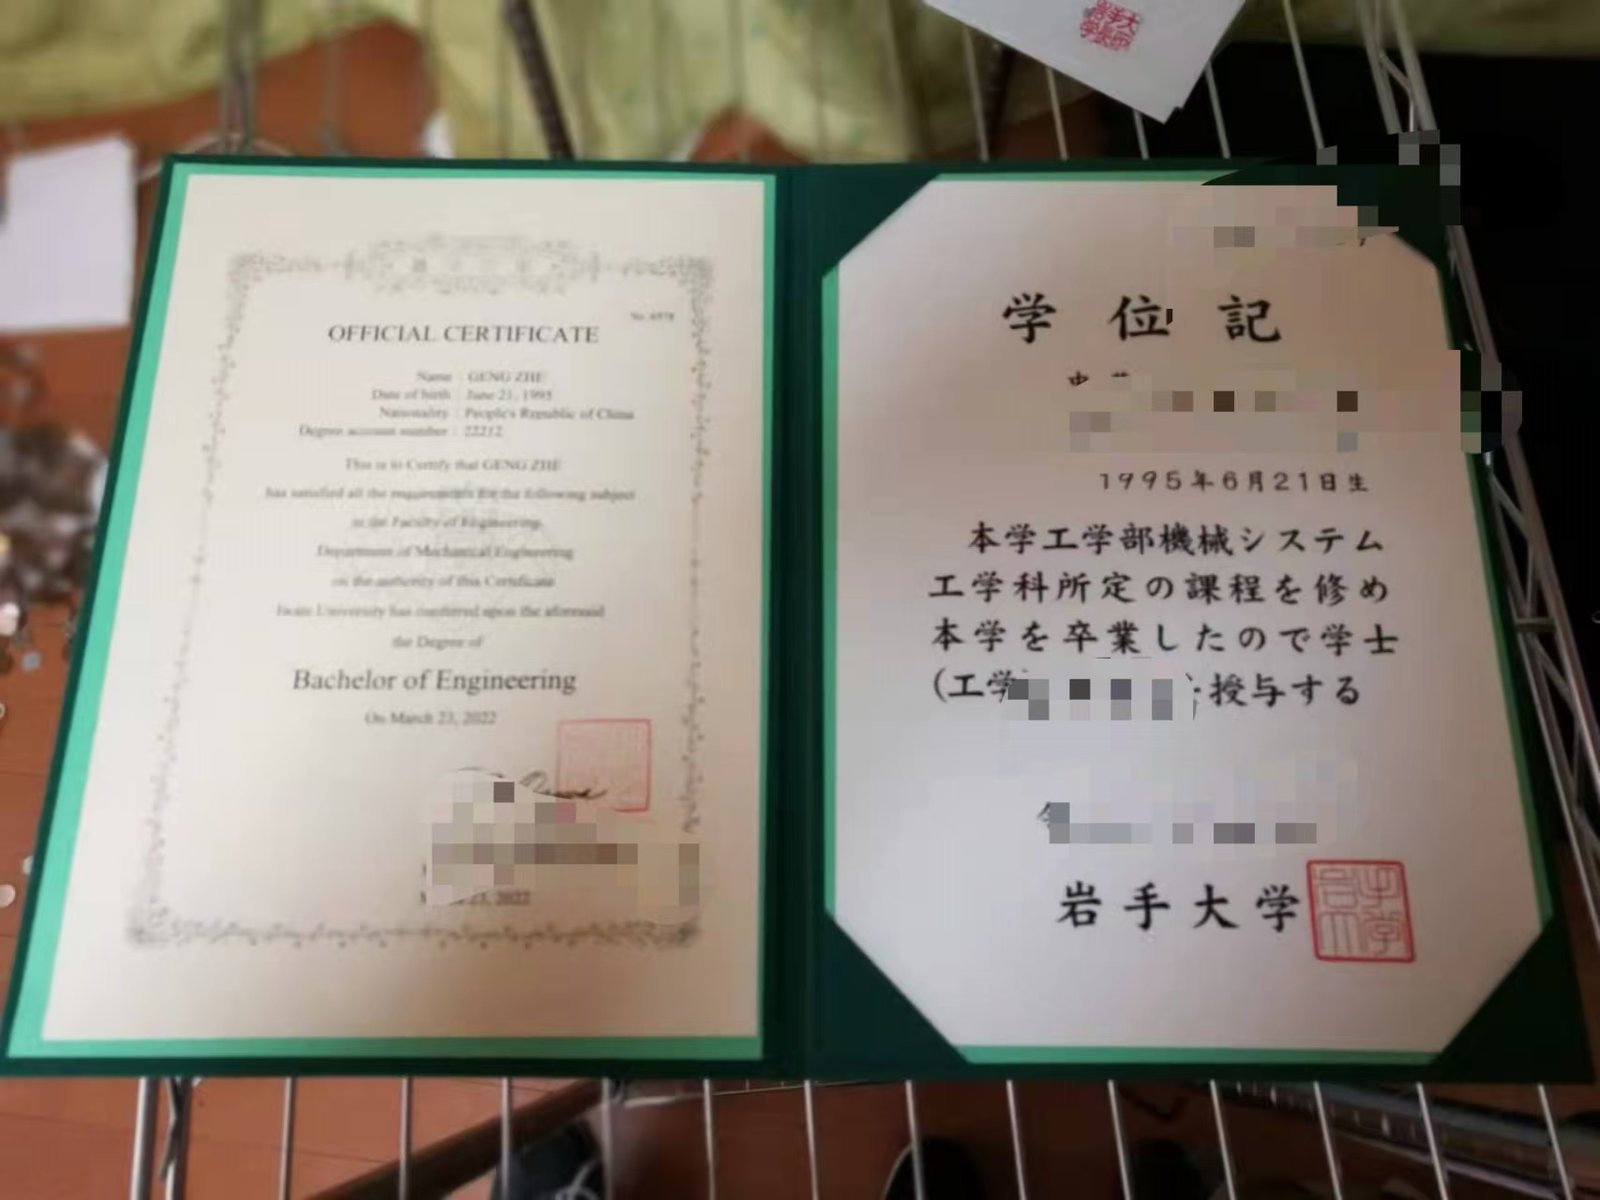 No. 6978
OFFICIAL CERTIFICATE
Name : GENG ZHE
Date of birth : June 21, 1995
Nationality : People's Republic of China
Degree account number : 22212
This is to Certify that GENG ZHE
has satisfied all the requirements for the following subject
in the Faculty of Engineering,
Department of Mechanical Engineering
on the authority of this Certificate
Iwate University has conferred upon the aforesaid
the Degree of
Bachelor of Engineering
On March 23, 2022
23, 2022
学位記
1995年6月21日生
本学工学部機械システム
工学科所定の課程を修め
本学を卒業したので学士
(工学 授与する
岩手大学